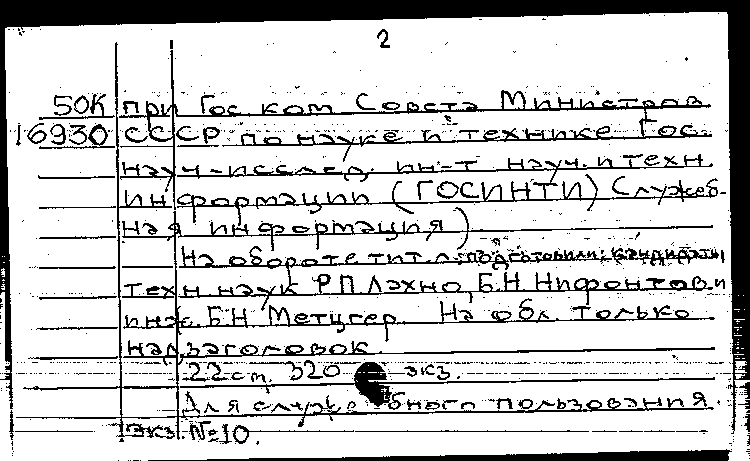 2
50К при Гос ком Совета Министров
16930 СССР по науке и технике Гос.
науч-исслед. ин-т науч. и техн.
информации (ГОСИНТИ) Служеб-
ная информация)
На обороте тит л: подготовили: кандидаты
техн наук Р.П Лахно, Б.Н. Нифонтов и
инж. Б.Н. Метцгер. На обл. только
надзаголовок.
22 см. 320 экз.
Для служебного пользования.
Экз. №10.